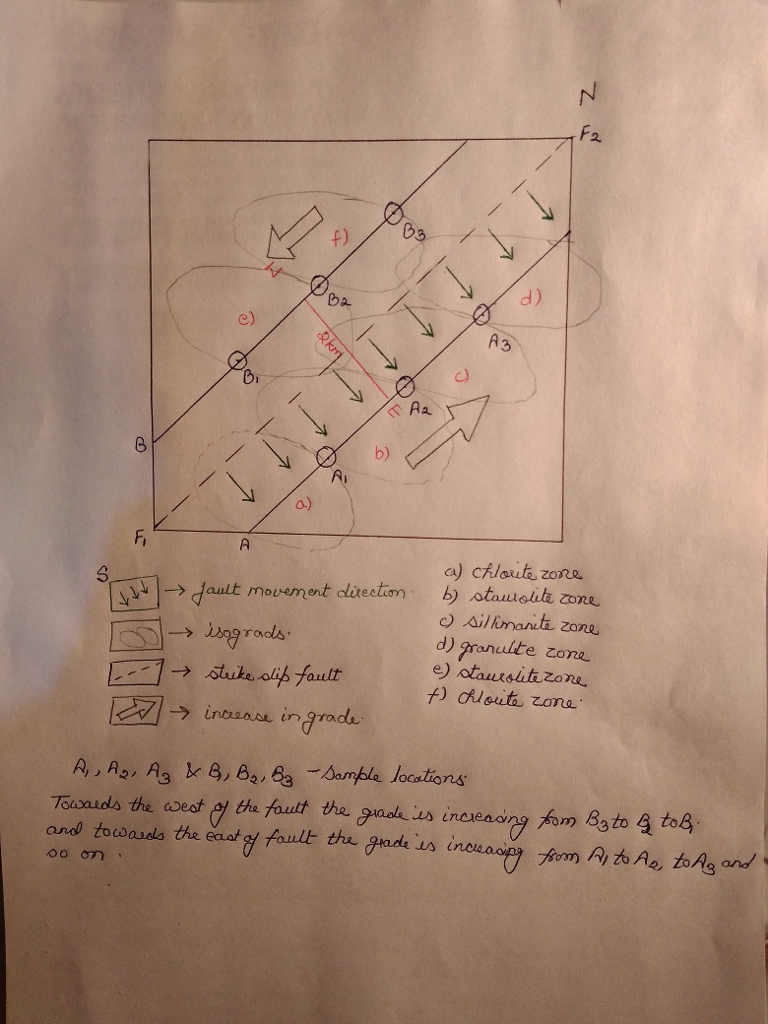 N
F2
B3
f)
W
d)
B2
e)
A3
2km
B1
c)
E
A2
B
b)
A1
a)
F1
A
S
→ fault movement direction
→ isograds.
→ strike slip fault
→ increase in grade.
a) chlorite zone
b) staurolite zone
c) sillimanite zone
d) granulite zone
e) staurolite zone
f) chlorite zone.
A1, A2, A3 & B1, B2, B3 - Sample locations.
Towards the west of the fault the grade is increasing from B3 to B2 to B1.
and towards the east of fault the grade is increasing from A1 to A2, to A3 and
so on.